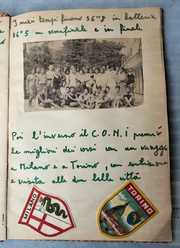 I miei tempi furono 36"8 in batteria
36"5 in semifinale e in finale
Poi l'inverno il C.O.N.I premiò
le migliori dei corsi con un viaggio
a Milano e a Torino, con
e visita alle due belle città
MILANO
TORINO